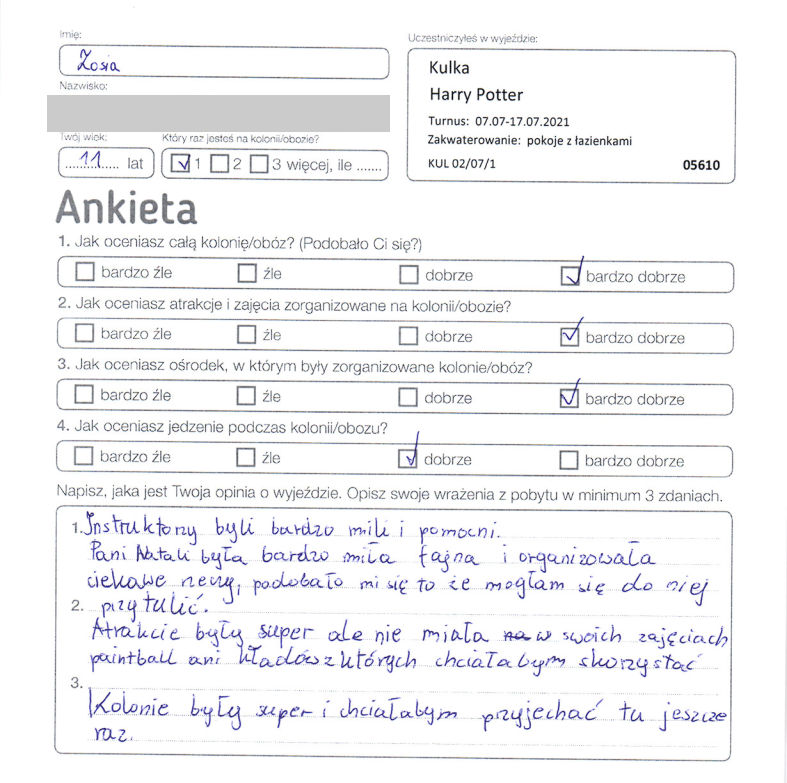 Imię:
Zosia
Nazwisko:
Twój wiek:
11 lat
Który raz jesteś na kolonii/obozie?
1 2 3 więcej, ile .......
Uczestniczyłeś w wyjeździe:
Kulka
Harry Potter
Turnus: 07.07-17.07.2021
Zakwaterowanie: pokoje z łazienkami
KUL 02/07/1 05610
Ankieta
1. Jak oceniasz całą kolonię/obóz? (Podobało Ci się?)
bardzo źle źle dobrze bardzo dobrze
2. Jak oceniasz atrakcje i zajęcia zorganizowane na kolonii/obozie?
bardzo źle źle dobrze bardzo dobrze
3. Jak oceniasz ośrodek, w którym były zorganizowane kolonie/obóz?
bardzo źle źle dobrze bardzo dobrze
4. Jak oceniasz jedzenie podczas kolonii/obozu?
bardzo źle źle dobrze bardzo dobrze
Napisz, jaka jest Twoja opinia o wyjeździe. Opisz swoje wrażenia z pobytu w minimum 3 zdaniach.
1. Instruktorzy byli bardzo mili i pomocni.
Pani Natali była bardzo miła fajna i organizowała
ciekawe rzeczy, podobało mi się to że mogłam się do niej
2. przytulić.
Atrakcie były super ale nie miała w swoich zajęciach
paintball ani kładów z których chciałabym skorzystać
3.
Kolonie były super i chciałabym przyjechać tu jeszcze
raz.